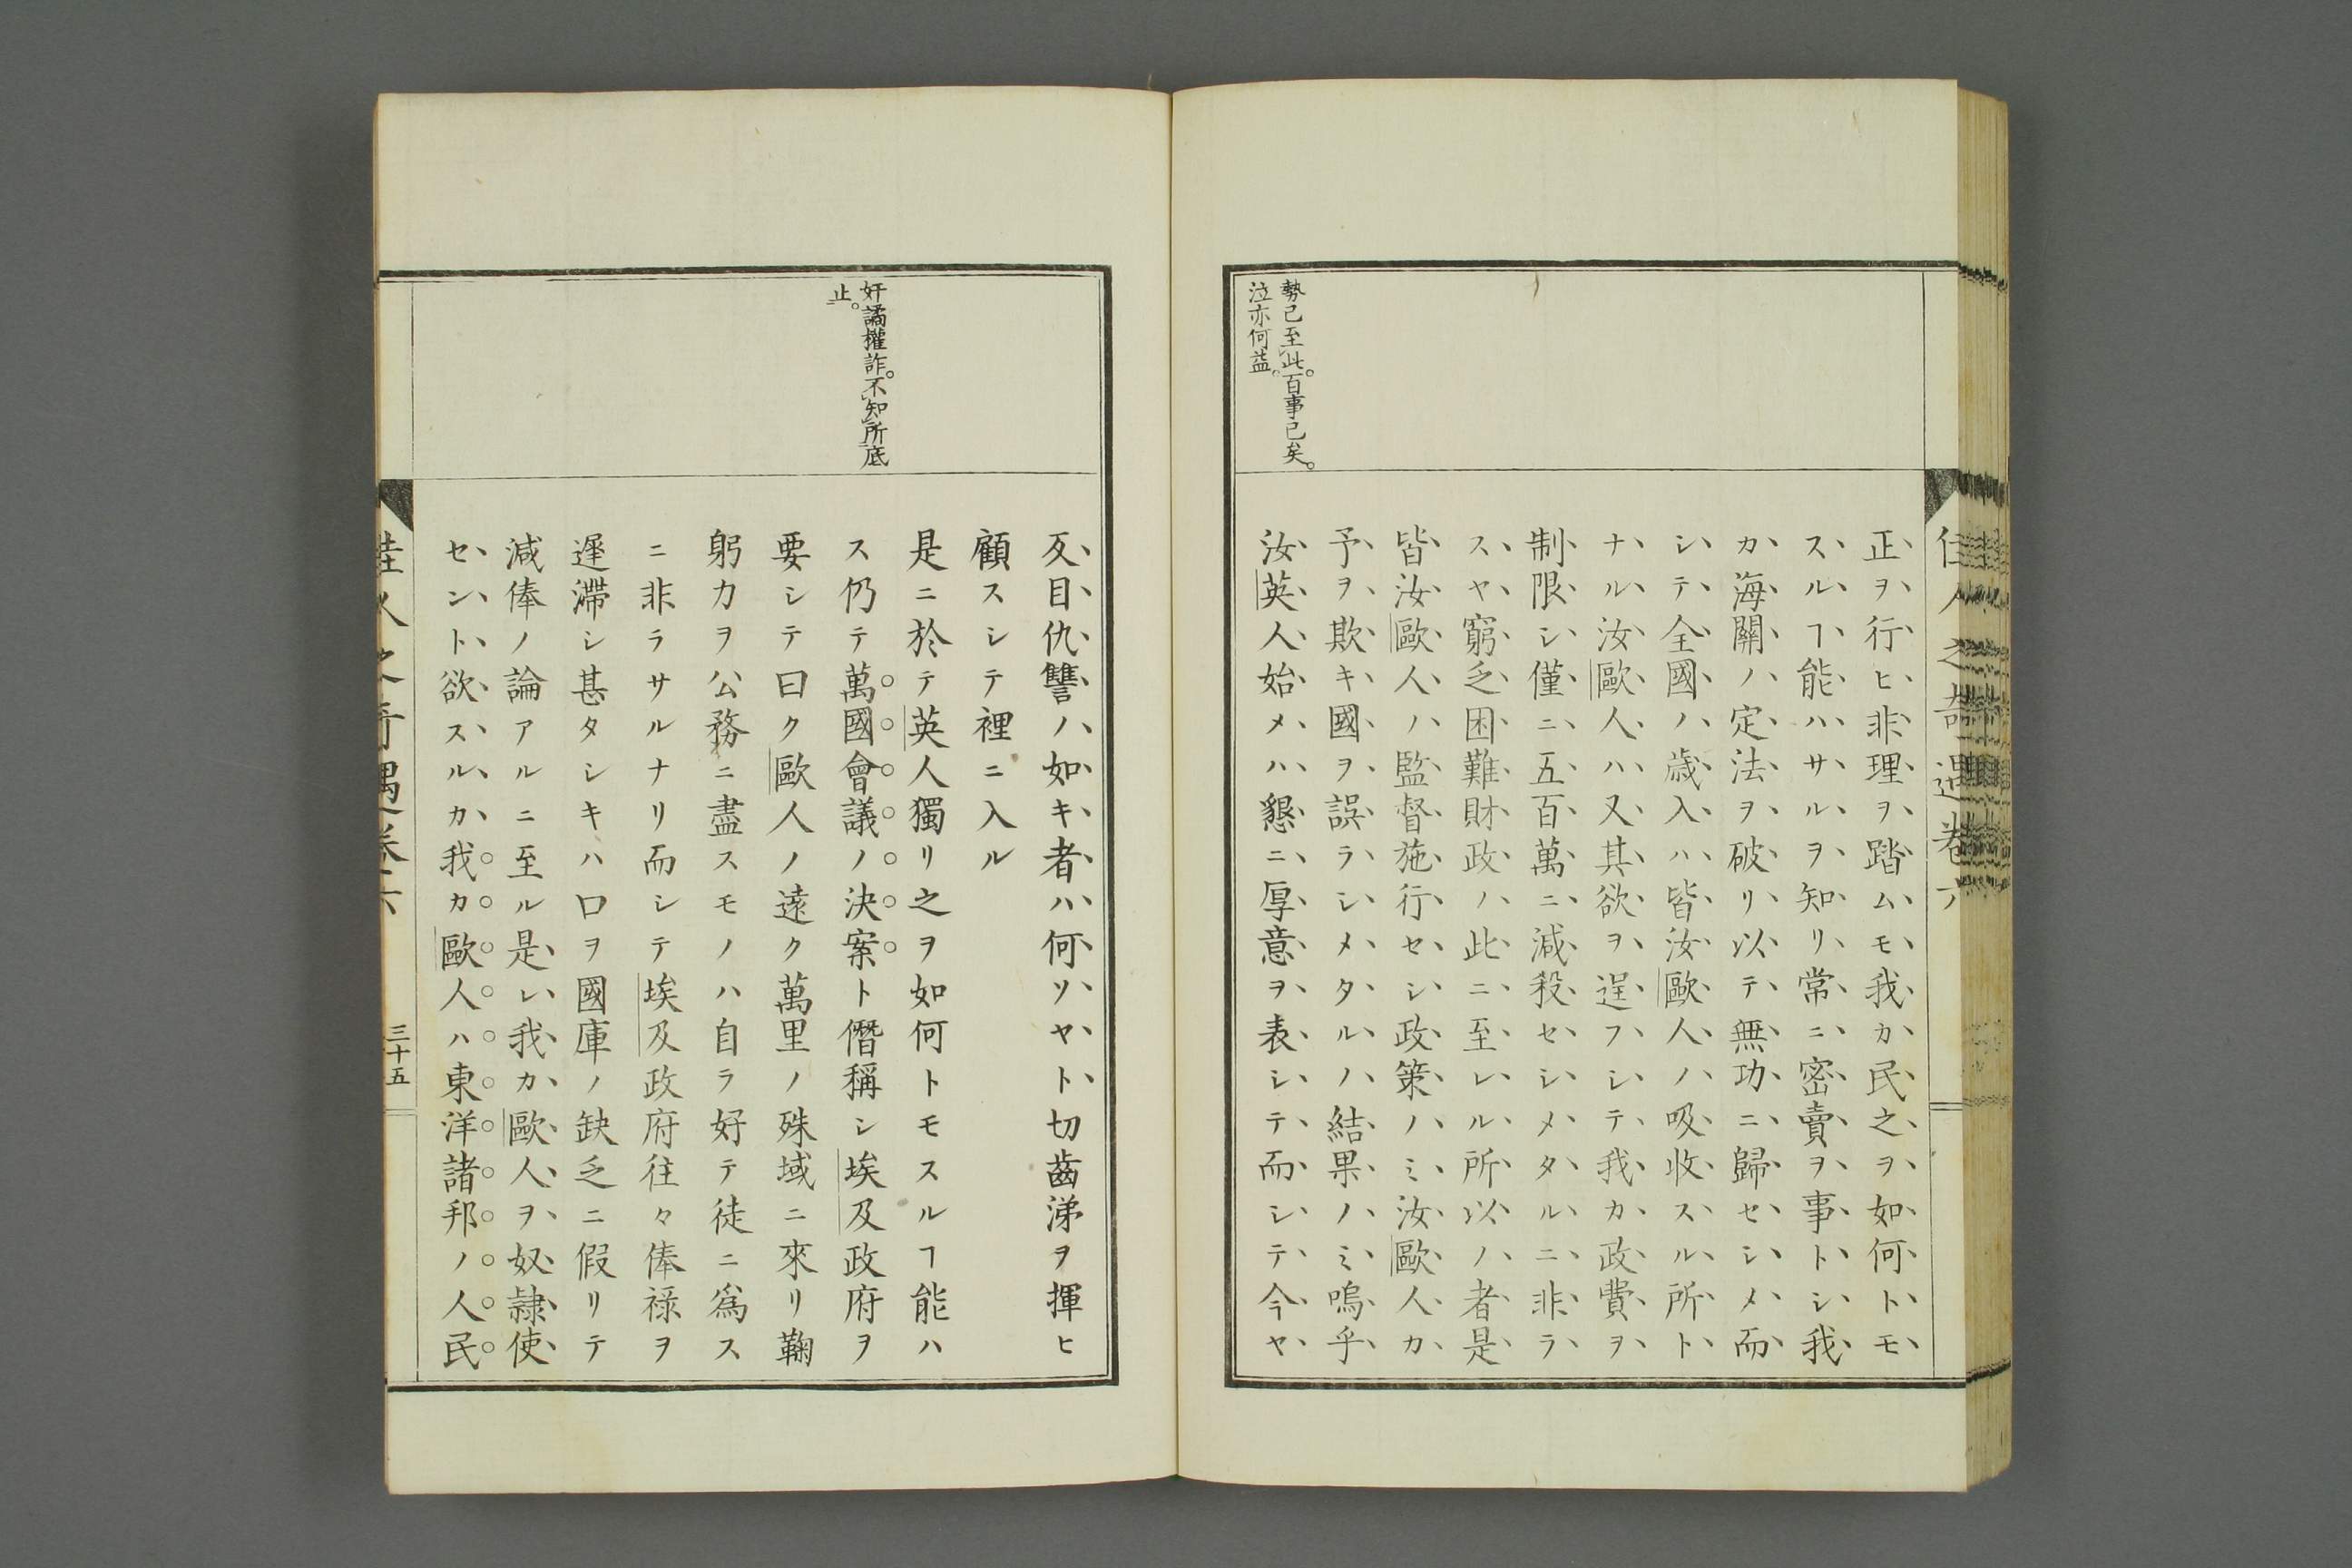 佳人之奇遇卷六
勢已至此。百事已矣。
泣亦何益。
正ヲ行ヒ非理ヲ踏ムモ我カ民之ヲ如何トモ
スルヿ能ハサルヲ知リ常ニ密賣ヲ事トシ我
カ海關ノ定法ヲ破リ以テ無功ニ歸セシメ而
シテ全國ノ歳入ハ皆汝歐人ノ吸收スル所ト
ナル汝歐人ハ又其欲ヲ逞フシテ我カ政費ヲ
制限シ僅ニ五百萬ニ減殺セシメタルニ非ラ
スヤ窮乏困難財政ノ此ニ至レル所以ノ者是
皆汝歐人ノ監督施行セシ政策ノミ汝歐人カ
予ヲ欺キ國ヲ誤ラシメタルノ結果ノミ嗚乎
汝英人始メハ懇ニ厚意ヲ表シテ而シテ今ヤ
奸譎權詐。不知所底
止。
反目仇讐ノ如キ者ハ何ソヤト切齒涕ヲ揮ヒ
顧スシテ裡ニ入ル
是ニ於テ英人獨リ之ヲ如何トモスルヿ能ハ
ス仍テ萬國會議ノ決案ト僭稱シ埃及政府ヲ
要シテ曰ク歐人ノ遠ク萬里ノ殊域ニ來リ鞠
躬力ヲ公務ニ盡スモノハ自ラ好テ徒ニ爲ス
ニ非ラサルナリ而シテ埃及政府往々俸祿ヲ
遲滯シ甚タシキハ口ヲ國庫ノ缺乏ニ假リテ
減俸ノ論アルニ至ル是レ我カ歐人ヲ奴隷使
セント欲スルカ我カ歐人ハ東洋諸邦ノ人民
佳人之奇遇卷六
三十五